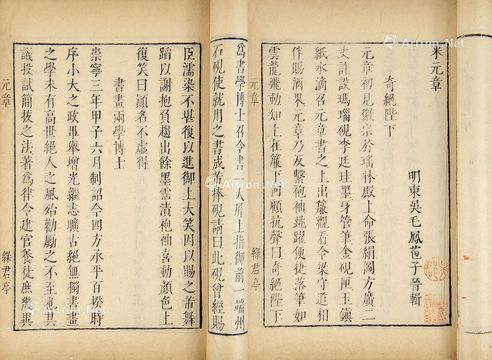 米元章
明東吳毛鳳苞子晉輯
奇絕陛下
元章初見徽宗於瑤林殿上命張絹圖方廣二
丈許設瑪瑙硯李廷珪墨牙管筆金硯匣玉鎮
紙水滴召元章書之上出簾觀看令梁守道相
伴賜酒果元章乃反繫袍袖跳躍便捷落筆如
雲龍飛動知上在簾下回顧抗聲曰奇絕陛下
元章
綠君亭
為書學博士召令書一大屏上指御前一端州
石硯使就用之書成芾捧硯請曰此硯曾經賜
臣濡染不堪復以進御上大笑因以賜之芾舞
蹈以謝抱負趨出餘墨霑漬袍袖喜動顏色上
復笑曰顛名不虛得
書畫兩學博士
崇寧三年甲子六月制詔今四方承平百揆時
序小大之政畢舉增光繼志曠古絕無獨書畫
之學未有超絕世人之風殆勸勵之不至庶其
議投試簡拔之法著為律令建官養徒庶幾異
元章
綠君亭